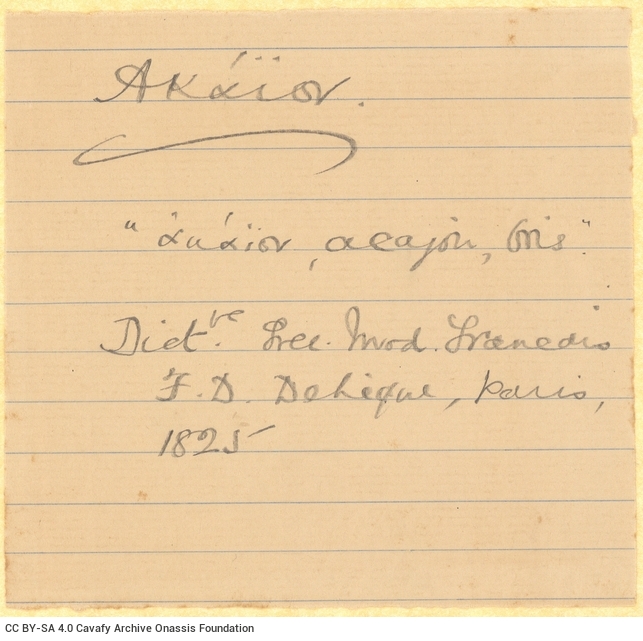 Ακάϊον.
"ἀκάϊον, acajou, bois".
Dict.re Grec. Mod. Francais
F. D. Dehèque, Paris,
1825
CC BY-SA 4.0 Cavafy Archive Onassis Foundation